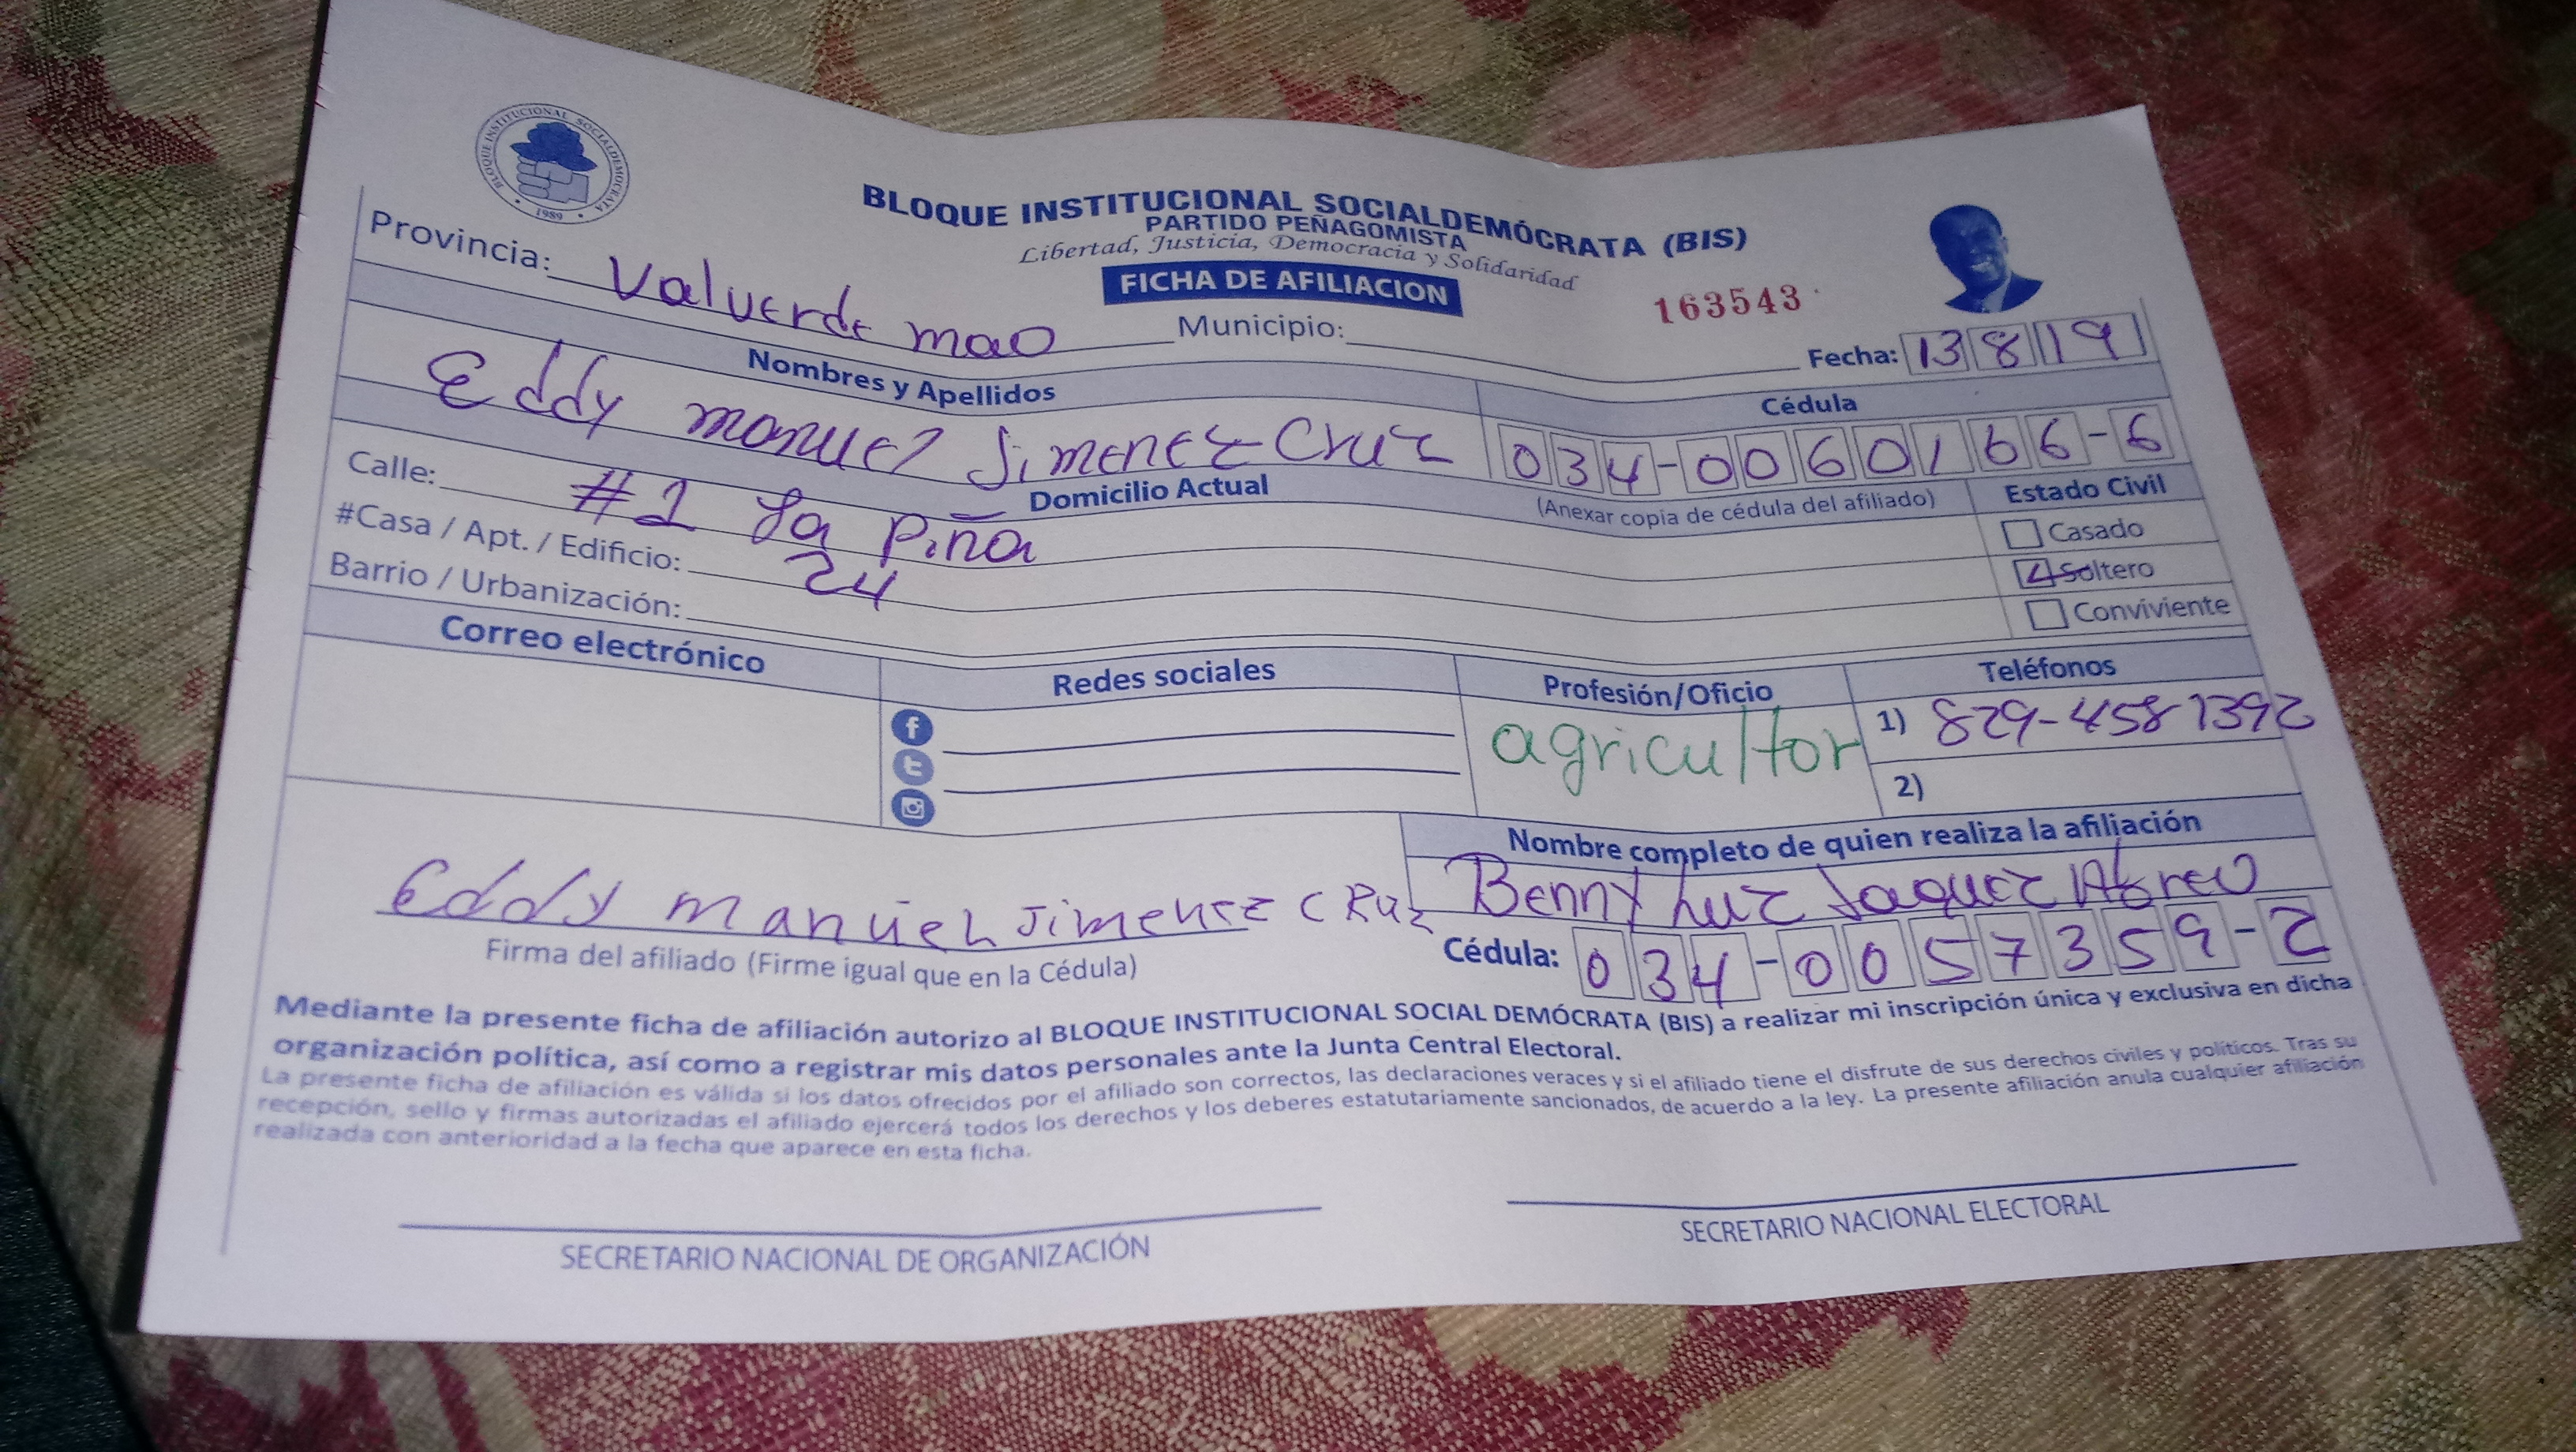 BLOQUE INSTITUCIONAL SOCIALDEMOCRATA
1989
BLOQUE INSTITUCIONAL SOCIALDEMÓCRATA (BIS)
PARTIDO PEÑAGOMISTA
Libertad, Justicia, Democracia y Solidaridad
FICHA DE AFILIACION
163543
Provincia: Valverde mao Municipio: Fecha: 13 8 19
Nombres y Apellidos Cédula
Eddy manuel Jimenez Cruz 034-0060166-6
(Anexar copia de cédula del afiliado)
Domicilio Actual Estado Civil
Calle: #1 La Piña
Casado
#Casa / Apt. / Edificio: 24
Soltero
Barrio / Urbanización:
Conviviente
Correo electrónico Redes sociales Profesión/Oficio Teléfonos
agricultor 1) 829-458 1392
2)
Nombre completo de quien realiza la afiliación
Eddy manuel Jimenez CRuz Benny Luz Jaquez Abreu
Firma del afiliado (Firme igual que en la Cédula) Cédula: 034-0057359-2
Mediante la presente ficha de afiliación autorizo al BLOQUE INSTITUCIONAL SOCIAL DEMÓCRATA (BIS) a realizar mi inscripción única y exclusiva en dicha
organización política, así como a registrar mis datos personales ante la Junta Central Electoral.
La presente ficha de afiliación es válida si los datos ofrecidos por el afiliado son correctos, las declaraciones veraces y si el afiliado tiene el disfrute de sus derechos civiles y políticos. Tras su
recepción, sello y firmas autorizadas el afiliado ejercerá todos los derechos y los deberes estatutariamente sancionados, de acuerdo a la ley. La presente afiliación anula cualquier afiliación
realizada con anterioridad a la fecha que aparece en esta ficha.
SECRETARIO NACIONAL DE ORGANIZACIÓN SECRETARIO NACIONAL ELECTORAL